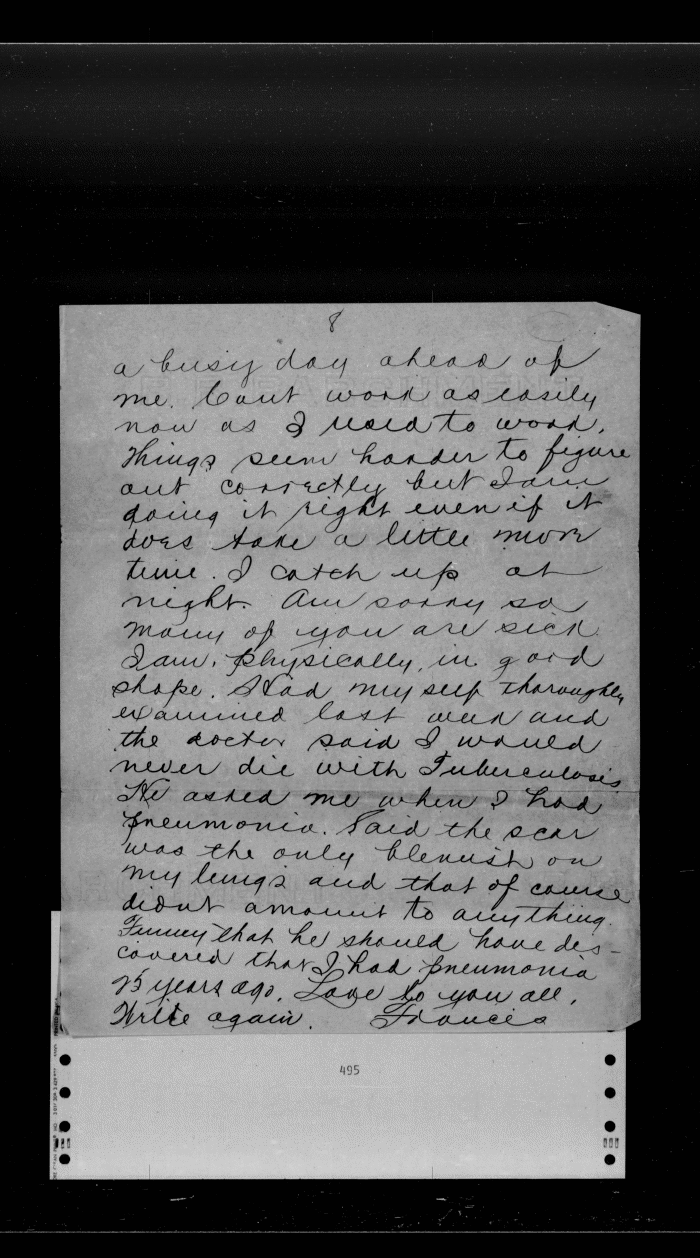 8
a busy day ahead of
me. Cant work as easily
now as I used to work.
Things seem harder to figure
out correctly but I am
doing it right even if it
does take a little more
time. I catch up at
night. Am sorry so
many of you are sick.
I am, physically, in good
shape. Had myself thoroughly
examined last week and
the doctor said I would
never die with Tuberculosis.
He asked me when I had
pneumonia. Said the scar
was the only blemish on
my lungs and that of course
didnt amount to anything.
Funny that he should have dis-
covered that I had pneumonia
25 years ago. Love to you all.
Write again. Francis
495